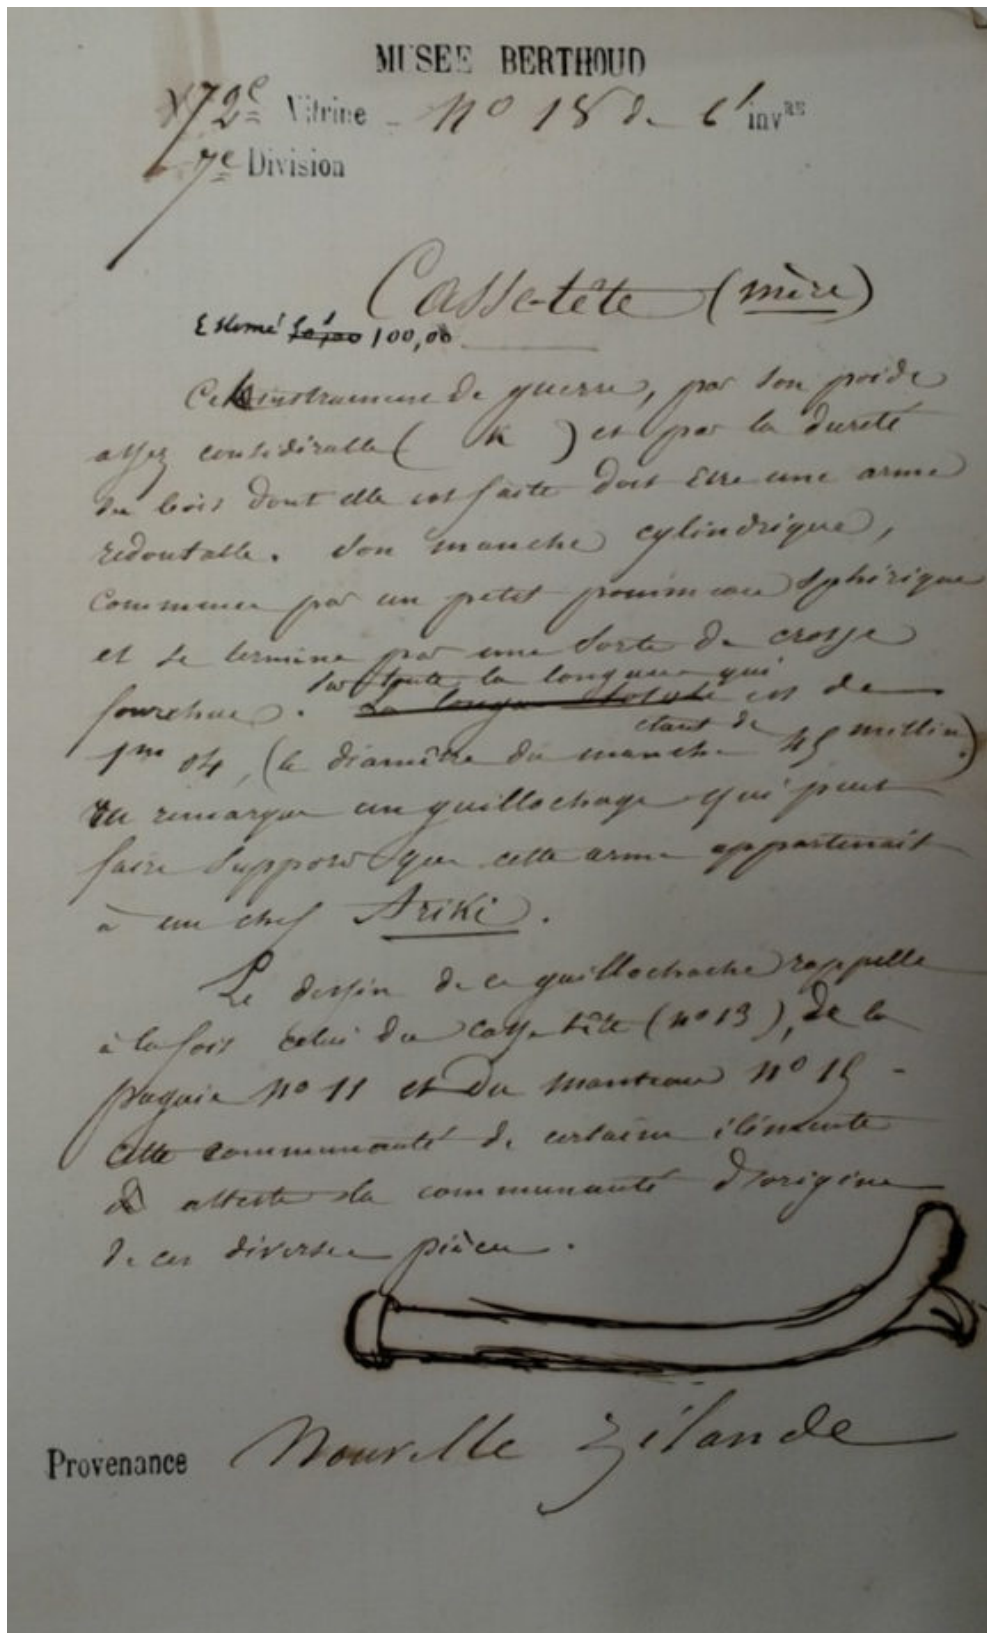 MUSEE BERTHOUD
72e Vitrine - No 18 de l' invre
7e Division
Casse-tête (mère)
Estimé 50,00 100,00
Cet instrument de guerre, par son poids
assez considérable ( K ) et par la dureté
du bois dont elle est faite doit être une arme
redoutable. Son manche cylindrique,
commence par un petit pommeau sphérique
et se termine par une sorte de crosse
fourchue. La longueur totale est de
sur toute la longueur qui
1m 04, (le diamètre du manche étant de 45 millim.)
on remarque un guillochage qui peut
faire supposer que cette arme appartenait
à un chef Ariki.
Le dessin de ce guillochache rappelle
à la fois celui du casse tête (no 13), de la
pagaie No 11 et du manteau No 15 -
cette communauté de certains éléments
atteste la communauté d'origine
de ces diverses pièces.
Provenance Nouvelle Zélande